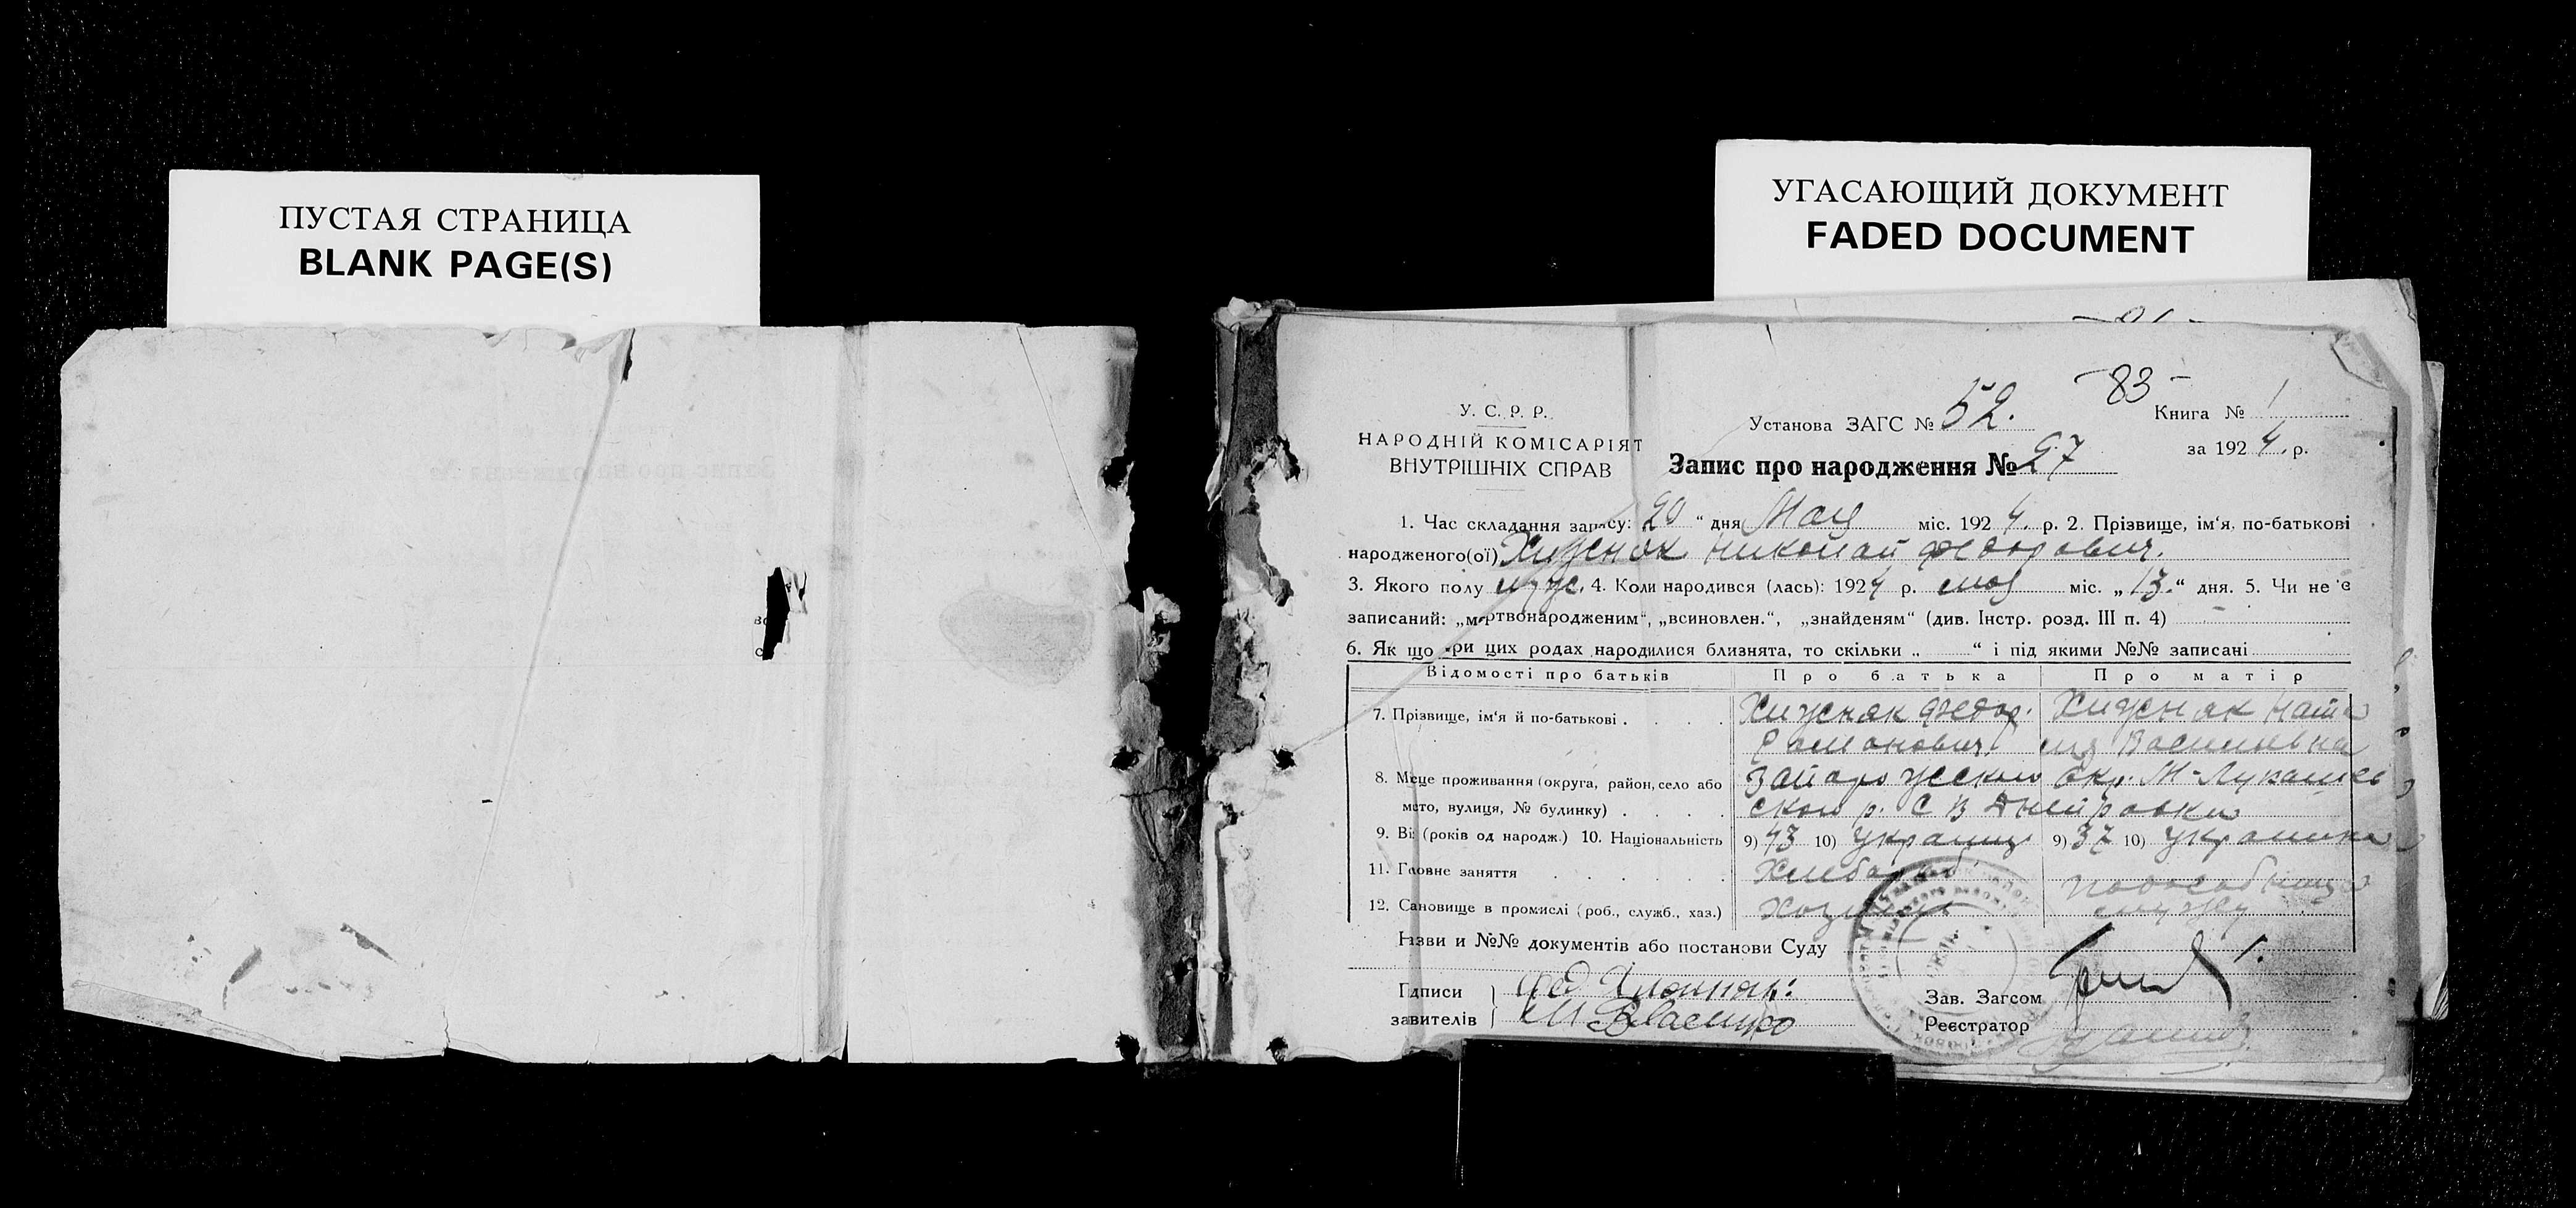 ПУСТАЯ СТРАНИЦА
BLANK PAGE(S)
УГАСАЮЩИЙ ДОКУМЕНТ
FADED DOCUMENT
-83-
У. С. Р. Р.
НАРОДНІЙ КОМІСАРІЯТ
ВНУТРІШНІХ СПРАВ
Установа ЗАГС № 52.
Книга № 1
за 1924. р.
Запис про народження № 27
1. Час складання запису: 20 " дня Мая міс. 1924. р. 2. Прізвище, ім'я, по-батькові
народженого(ої) Хижняк Николай Федорович.
3. Якого полу муж. 4. Коли народився (лась): 1924 р. мая міс. „13." дня. 5. Чи не є
записаний: „мертвонародженим", „всиновлен.", „знайденям" (див. Інстр. розд. III п. 4)
6. Як що при цих родах народилися близнята, то скільки „ " і під якими №№ записані
Відомості про батьків Про батька Про матір
7. Прізвище, ім'я й по-батькові . . . . Хижняк Федор. Хижняк Ната
Романович лия Васильевна
8. Місце проживання (округа, район, село або Запорожской окр. М-Лукашев
місто, вулиця, № будинку) . . . . ской р. С В Днепровки
9. Вік (років од народж.) 10. Національність 9) 43 10) украинц 9) 37 10) украинка
11. Головне заняття . . . . . Хлебороб
12. Становище в промислі (роб., служб., хаз.) Хозяин мужу
Назви и №№ документів або постанови Суду
Підписи
завителів М Власенко
Зав. Загсом
Реєстратор